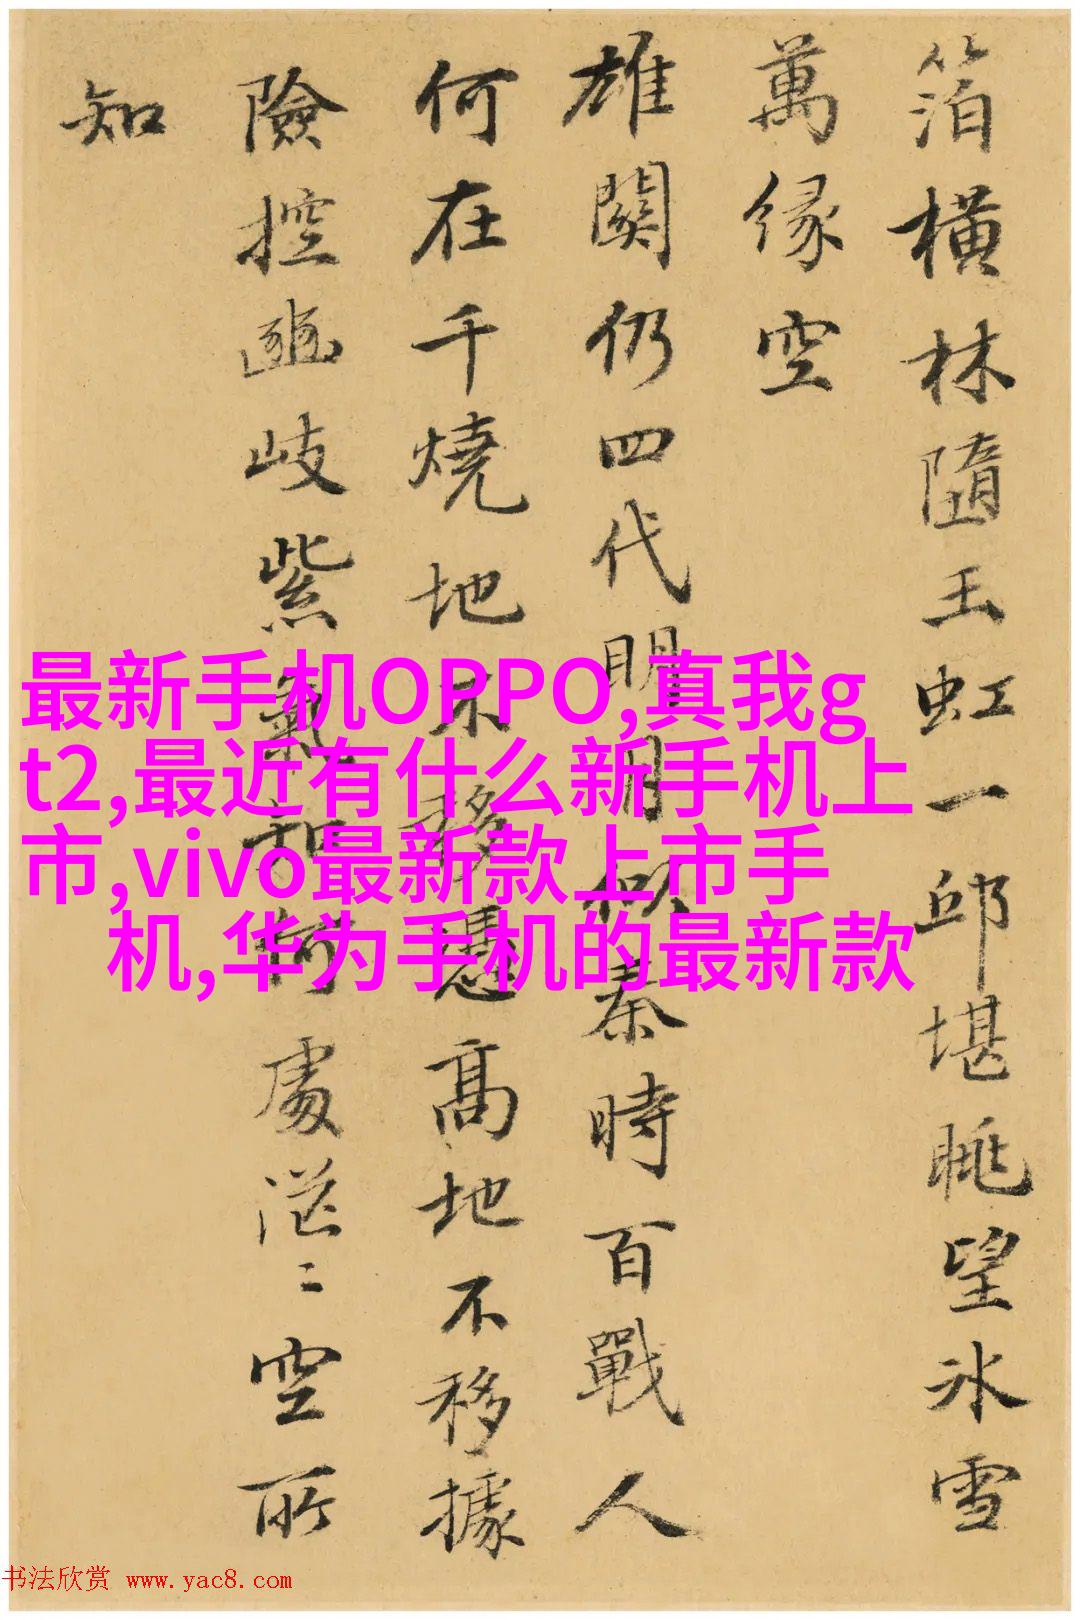 箔橫林隨玉虹一邱堪眺望氷雪
萬緣空
雄關仍四代明月似秦時百戰人
何在千燒地不移憑高地不移據
險控豳岐紫氣知何處茫〻空所
知
最新手机OPPO,真我g
t2,最近有什么新手机上
市,vivo最新款上市手
机,华为手机的最新款
书法欣赏 www.yac8.com